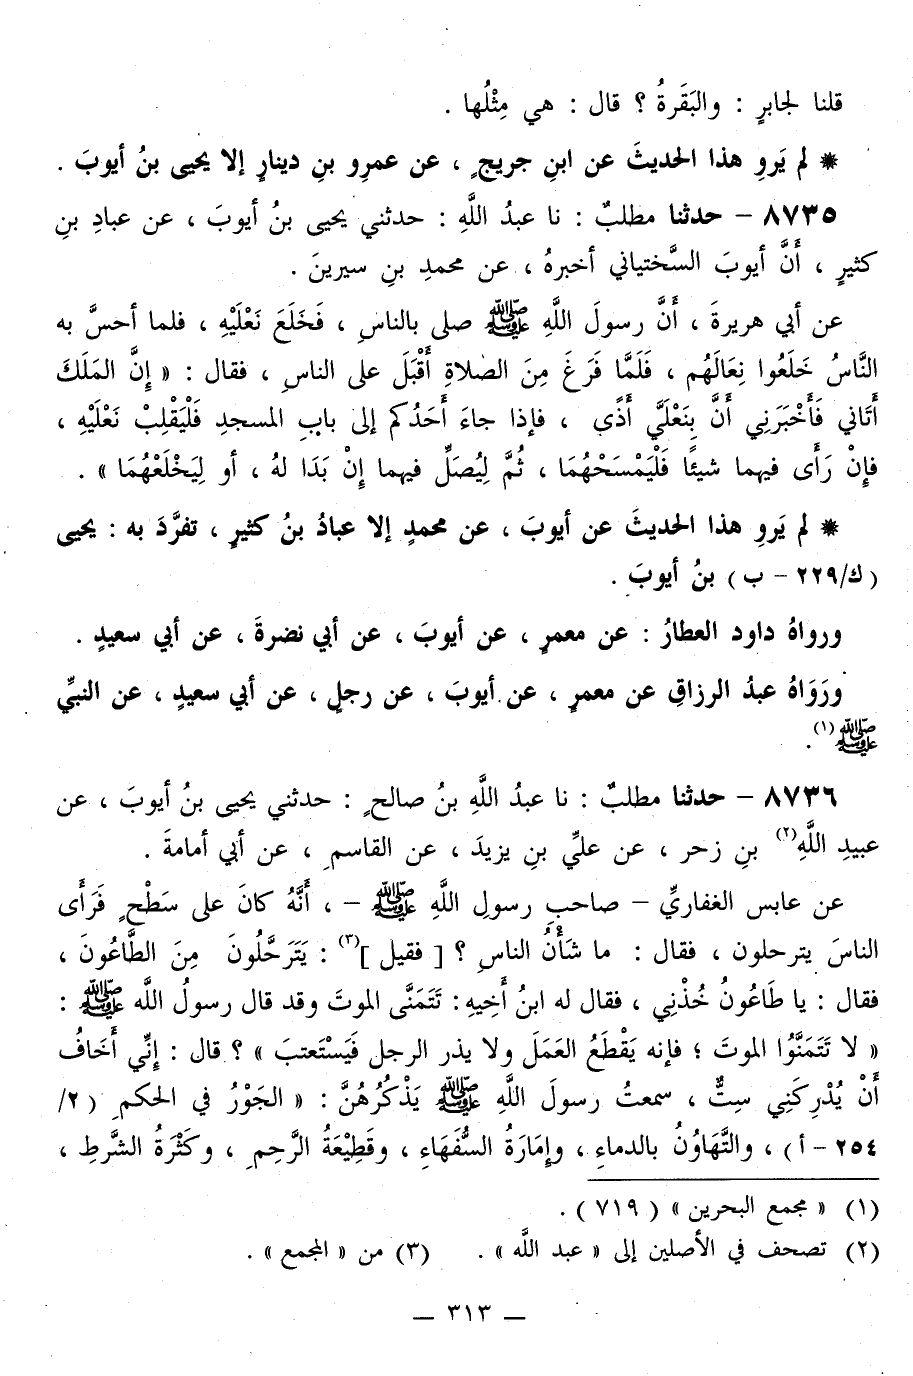 قلنا لجابرٍ : والبَقَرةُ ؟ قال : هي مِثْلُها .
* لم يَروِ هذا الحديثَ عن ابنِ جريجٍ ، عن عمرِو بنِ دينارٍ إلا يحيى بنُ أيوبَ .
٨٧٣٥ – حدثنا مطلبٌ : نا عبدُ اللَّهِ : حدثني يحيى بنُ أيوبَ ، عن عبادِ بنِ
كثيرٍ ، أَنَّ أيوبَ السَّختياني أخبرهُ ، عن محمدِ بنِ سيرينَ .
عن أبي هريرةَ ، أَنَّ رسولَ اللَّهِ ﷺ صلى بالناسِ ، فَخَلَعَ نَعْلَيْهِ ، فلما أحسَّ به
النَّاسُ خَلَعُوا نِعَالَهُم ، فَلَمَّا فَرَغَ مِنَ الصلاةِ أَقْبَلَ على الناسِ ، فقال : « إِنَّ المَلَكَ
أَتَاني فَأَخْبَرَنِي أَنَّ بِنَعْلَيَّ أَذًى ، فإذا جاءَ أَحَدُكم إلى بابِ المسجدِ فَلْيَقْلِبْ نَعْلَيْهِ ،
فإِنْ رَأَى فيهما شيئًا فَلْيَمْسَحْهُمَا ، ثُمَّ لِيُصَلِّ فيهما إِنْ بَدَا لهُ ، أو لِيَخْلَعْهُمَا » .
* لم يَروِ هذا الحديثَ عن أيوبَ ، عن محمدٍ إلا عبادُ بنُ كثيرٍ ، تفرَّدَ به : يحيى
( ك/٢٢٩ – ب ) بنُ أيوبَ .
ورواهُ داود العطارُ : عن معمرٍ ، عن أيوبَ ، عن أبي نضرةَ ، عن أبي سعيدٍ .
ورَوَاهُ عبدُ الرزاقِ عن معمرٍ ، عن أيوبَ ، عن رجلٍ ، عن أبي سعيدٍ ، عن النبيِّ
ﷺ(١) .
٨٧٣٦ – حدثنا مطلبٌ : نا عبدُ اللَّهِ بنُ صالحٍ : حدثني يحيى بنُ أيوبَ ، عن
عبيدِ اللَّهِ(٢) بنِ زحر ، عن عليِّ بنِ يزيدَ ، عن القاسمِ ، عن أبي أمامةَ .
عن عابس الغفاريِّ – صاحبِ رسولِ اللَّهِ ﷺ – ، أَنَّهُ كانَ على سَطْحٍ فَرَأى
الناسَ يترحلون ، فقال : ما شَأْنُ الناسِ ؟ [ فقيل ](٣) : يَتَرَحَّلُونَ مِنَ الطَّاعُونَ ،
فقال : يا طَاعُونُ خُذْنِي ، فقال له ابنُ أَخِيهِ : تَتَمَنَّى الموتَ وقد قال رسولُ اللَّه ﷺ :
« لا تَتَمَنَّوُا الموتَ ؛ فإنه يَقْطَعُ العَمَلَ ولا يذر الرجل فَيَسْتَعتبَ » ؟ قال : إِنِّي أَخَافُ
أَنْ يُدْرِكَنِي سِتٌّ ، سمعتُ رسولَ اللَّهِ ﷺ يَذْكُرُهُنَّ : « الجَوْرُ في الحكمِ ( ٢/
٢٥٤ – أ ) ، والتَّهَاوُنُ بالدماءِ ، وإِمَارَةُ السُّفَهَاءِ ، وقَطِيْعَةُ الرَّحِمِ ، وكَثْرَةُ الشُّرَطِ ،
(١) « مجمع البحرين » ( ٧١٩ ) .
(٢) تصحف في الأصلين إلى « عبد اللَّه » . (٣) من « المجمع » .
— ٣١٣ —